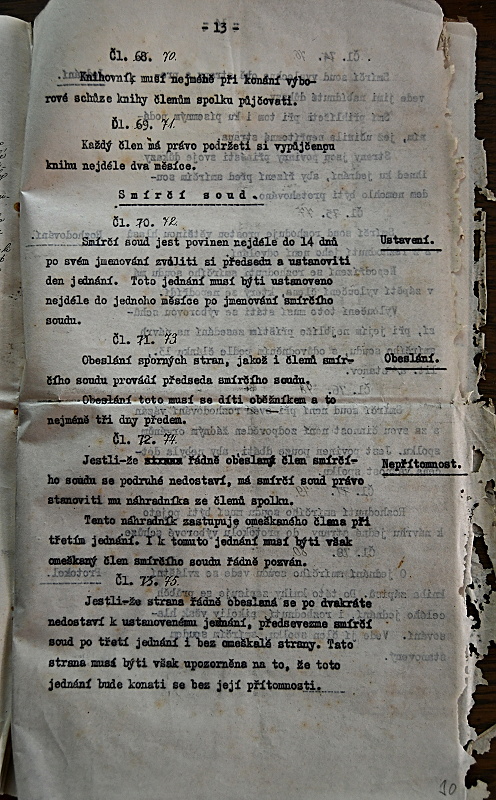 - 13 -
Čl. 68. 70.
Knihovník musí nejméně při konání výbo-
rové schůze knihy členům spolku půjčovati.
Čl. 69. 71.
Každý člen má právo podržeti si vypůjčenou
knihu nejdéle dva měsíce.
Smírčí soud.
Čl. 70. 72.
Smírčí soud jest povinen nejdéle do 14 dnů
Ustavení.
po svém jmenování zvoliti si předsedu a ustanoviti
den jednání. Toto jednání musí býti ustanoveno
nejdéle do jednoho měsíce po jmenování smírčího
soudu.
Čl. 71. 73
Obeslání sporných stran, jakož i členů smír-
Obeslání.
čího soudu provádí předseda smírčího soudu.
Obeslání toto musí se díti oběžníkem a to
nejméně tři dny předem.
Čl. 72. 74.
Jestli-že řádně obeslaný člen smírčí-
Nepřítomnost.
ho soudu se podruhé nedostaví, má smírčí soud právo
stanoviti mu náhradníka ze členů spolku.
Tento náhradník zastupuje omeškaného člena při
třetím jednání. I k tomuto jednání musí býti však
omeškaný člen smírčího soudu řádně pozván.
Čl. 73. 75.
Jestli-že strana řádně obeslaná se po dvakráte
nedostaví k ustanovenému jednání, předsevezme smírčí
soud po třetí jednání i bez omeškalé strany. Tato
strana musí býti však upozorněna na to, že toto
jednání bude konati se bez její přítomnosti.